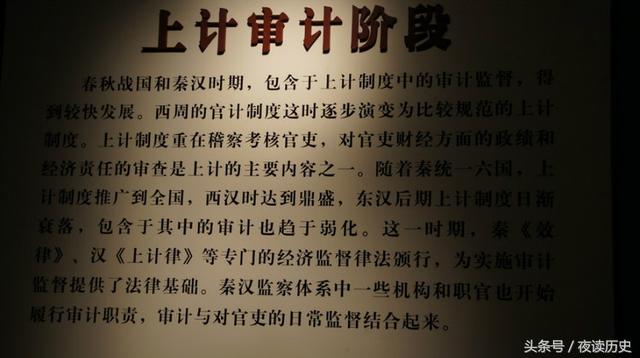 上计审计阶段
春秋战国和秦汉时期，包含于上计制度中的审计监督，得
到较快发展。西周的官计制度这时逐步演变为比较规范的上计
制度。上计制度重在稽察考核官吏，对官吏财经方面的政绩和
经济责任的审查是上计的主要内容之一。随着秦统一六国，上
计制度推广到全国，西汉时达到鼎盛，东汉后期上计制度日渐
衰落，包含于其中的审计也趋于弱化。这一时期，秦《效
律》、汉《上计律》等专门的经济监督律法颁行，为实施审计
监督提供了法律基础。秦汉监察体系中一些机构和职官也开始
履行审计职责，审计与对官吏的日常监督结合起来。
头条号／夜读历史